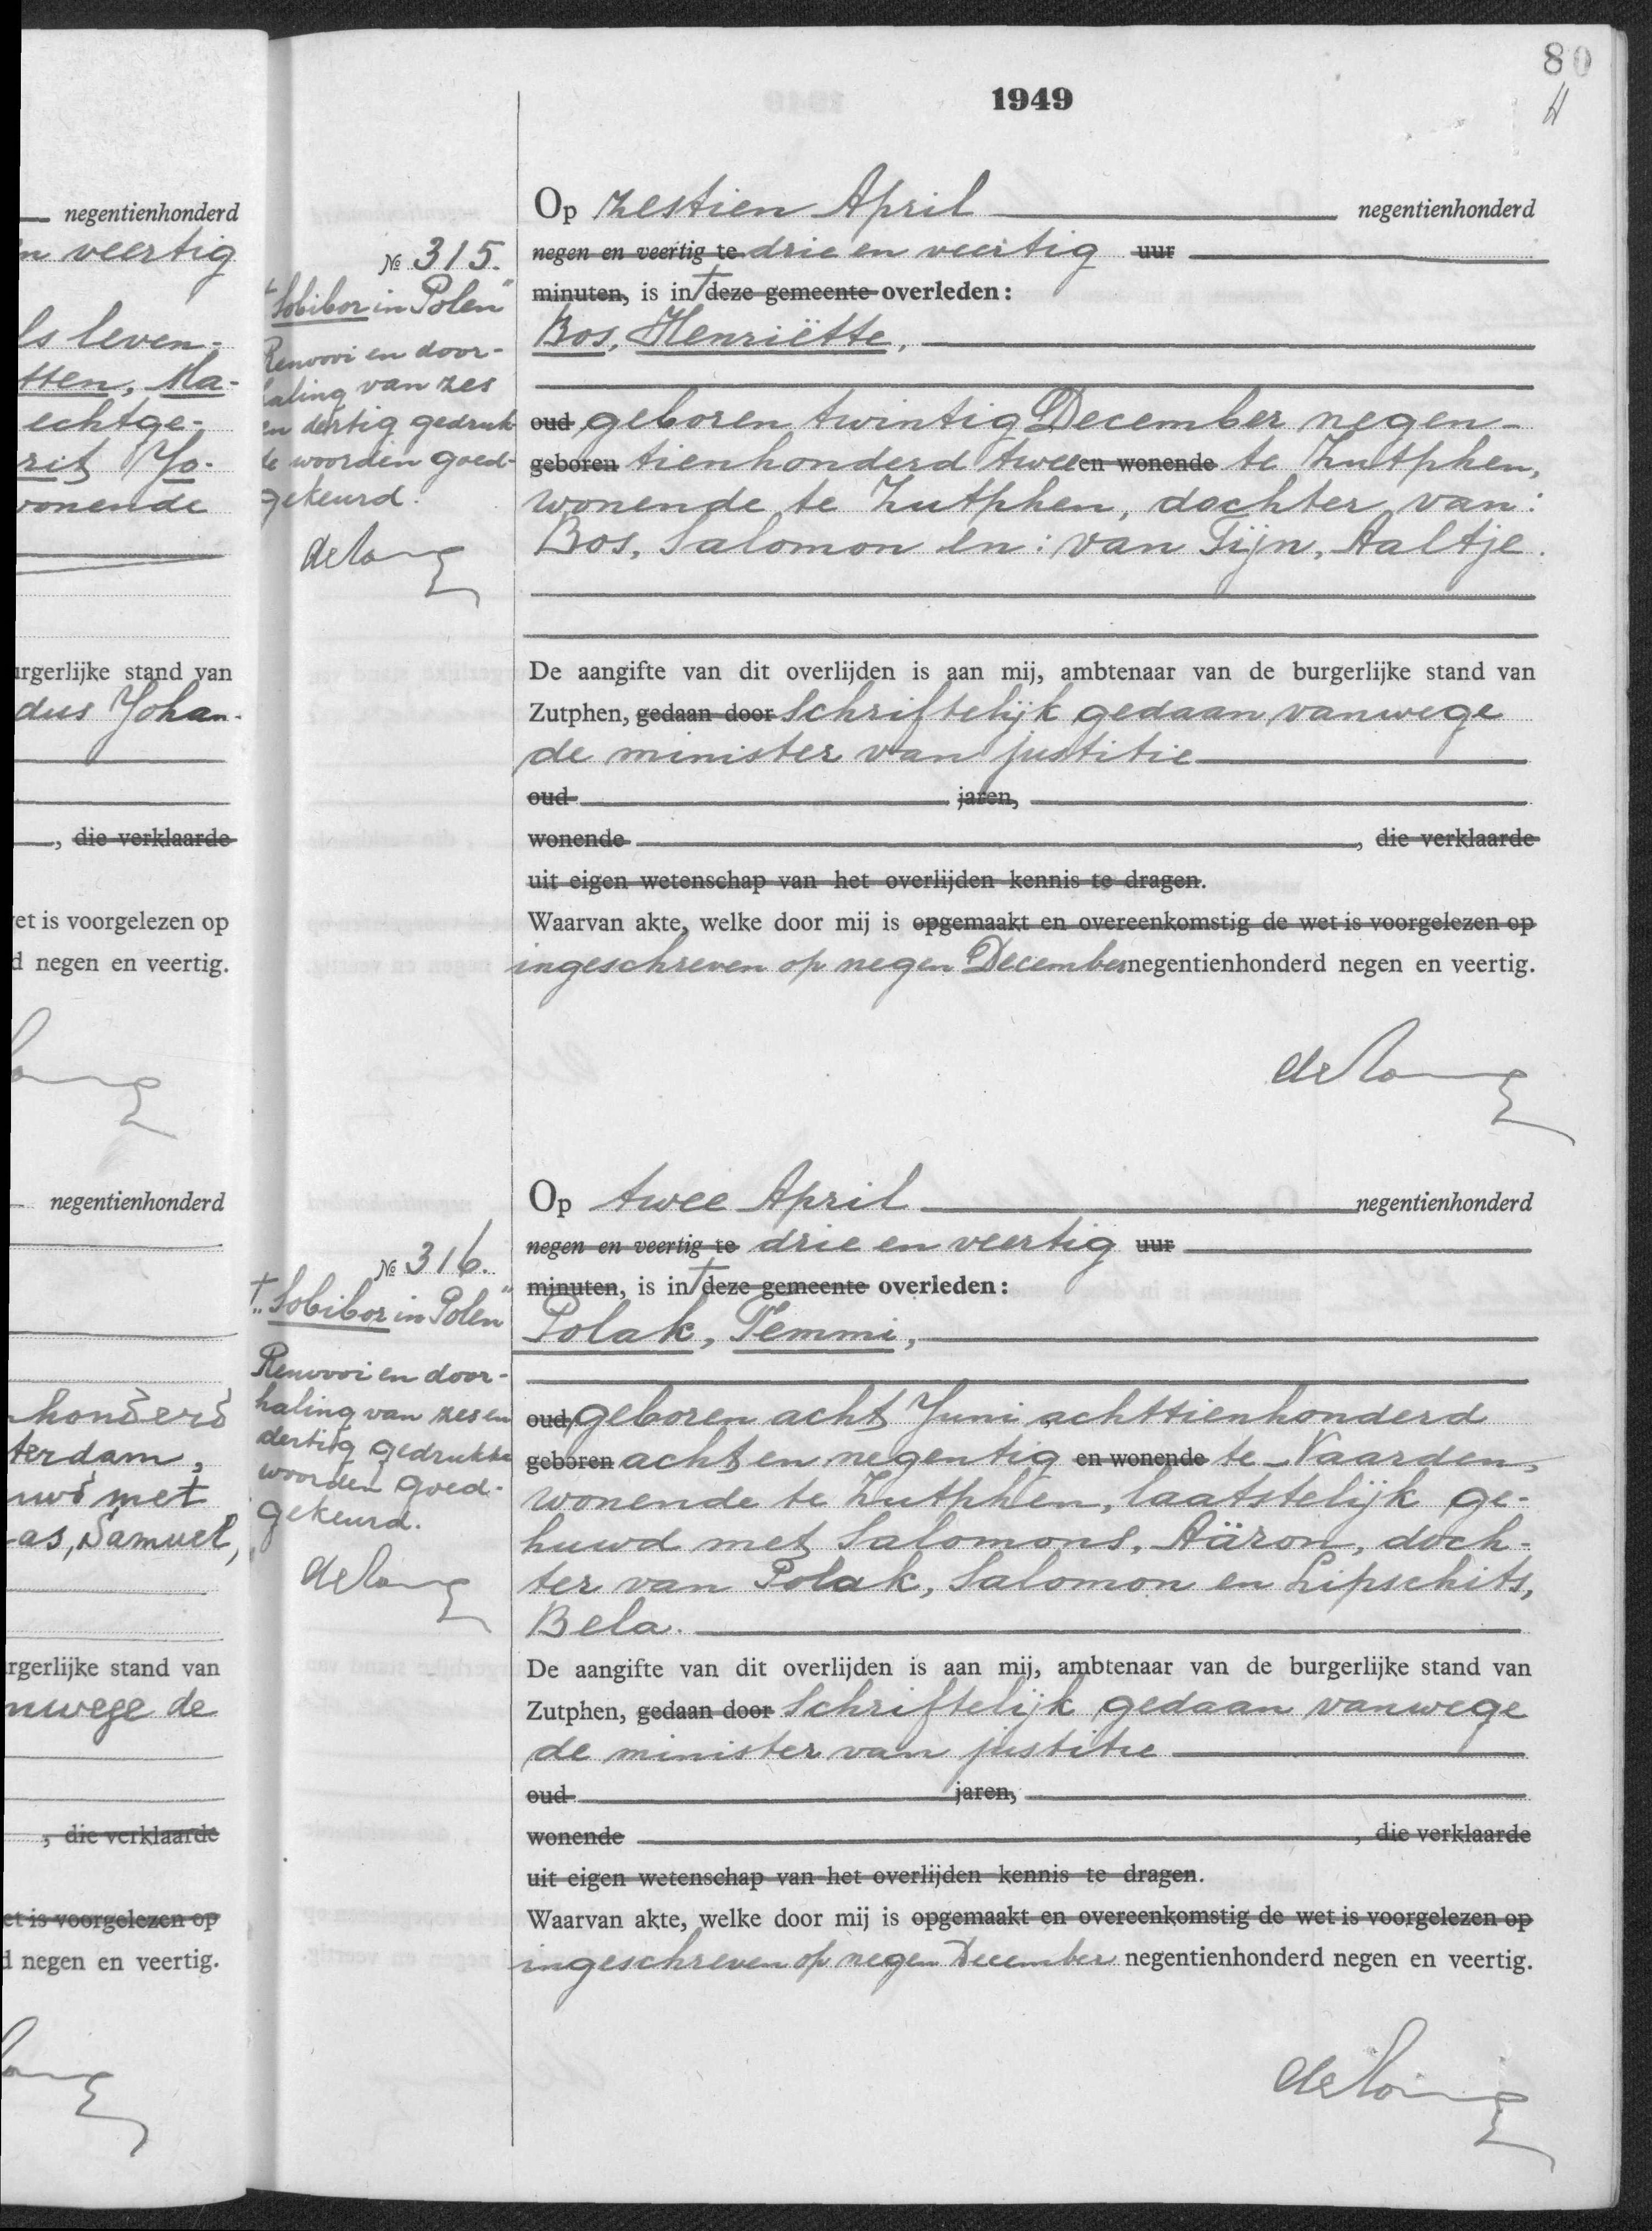 negentienhonderd
n veertig
ls leven-
tten, Ma-
echtge-
rit Jo-
wonende
urgerlijke stand van
dus Johan-
, die verklaarde
et is voorgelezen op
d negen en veertig.
negentienhonderd
honderd
terdam,
uwd met
as, Samuel,
rgerlijke stand van
nwege de
, die verklaarde
et is voorgelezen op
d negen en veertig.
80
1949
№ 315.
† "Sobibor in Polen"
Renvooi en door-
haling van zes
en dertig gedruk-
te woorden goed-
gekeurd.
de Lang
Op zestien April negentienhonderd
negen en veertig te drie en veertig uur
minuten, is in † deze gemeente overleden:
Bos, Henriëtte,
oud geboren twintig December negen-
geboren tienhonderd twee en wonende te Zutphen,
wonende te Zutphen, dochter van:
Bos, Salomon en: van Tijn, Aaltje.
De aangifte van dit overlijden is aan mij, ambtenaar van de burgerlijke stand van
Zutphen, gedaan door Schriftelijk gedaan vanwege
de minister van justitie
oud jaren,
wonende , die verklaarde
uit eigen wetenschap van het overlijden kennis te dragen.
Waarvan akte, welke door mij is opgemaakt en overeenkomstig de wet is voorgelezen op
ingeschreven op negen December negentienhonderd negen en veertig.
de Lang
№ 316.
† "Sobibor in Polen"
Renvooi en door-
haling van zes en
dertig gedrukte
woorden goed-
gekeurd.
de Lang
Op twee April negentienhonderd
negen en veertig te drie en veertig uur
minuten, is in † deze gemeente overleden:
Polak, Femmi,
oud, geboren acht Juni achttienhonderd
geboren acht en negentig en wonende te Naarden,
wonende te Zutphen, laatstelijk ge-
huwd met Salomons, Aäron, doch-
ter van Polak, Salomon en Lipschits,
Bela.
De aangifte van dit overlijden is aan mij, ambtenaar van de burgerlijke stand van
Zutphen, gedaan door Schriftelijk gedaan vanwege
de minister van justitie
oud jaren,
wonende , die verklaarde
uit eigen wetenschap van het overlijden kennis te dragen.
Waarvan akte, welke door mij is opgemaakt en overeenkomstig de wet is voorgelezen op
ingeschreven op negen December negentienhonderd negen en veertig.
de Lang